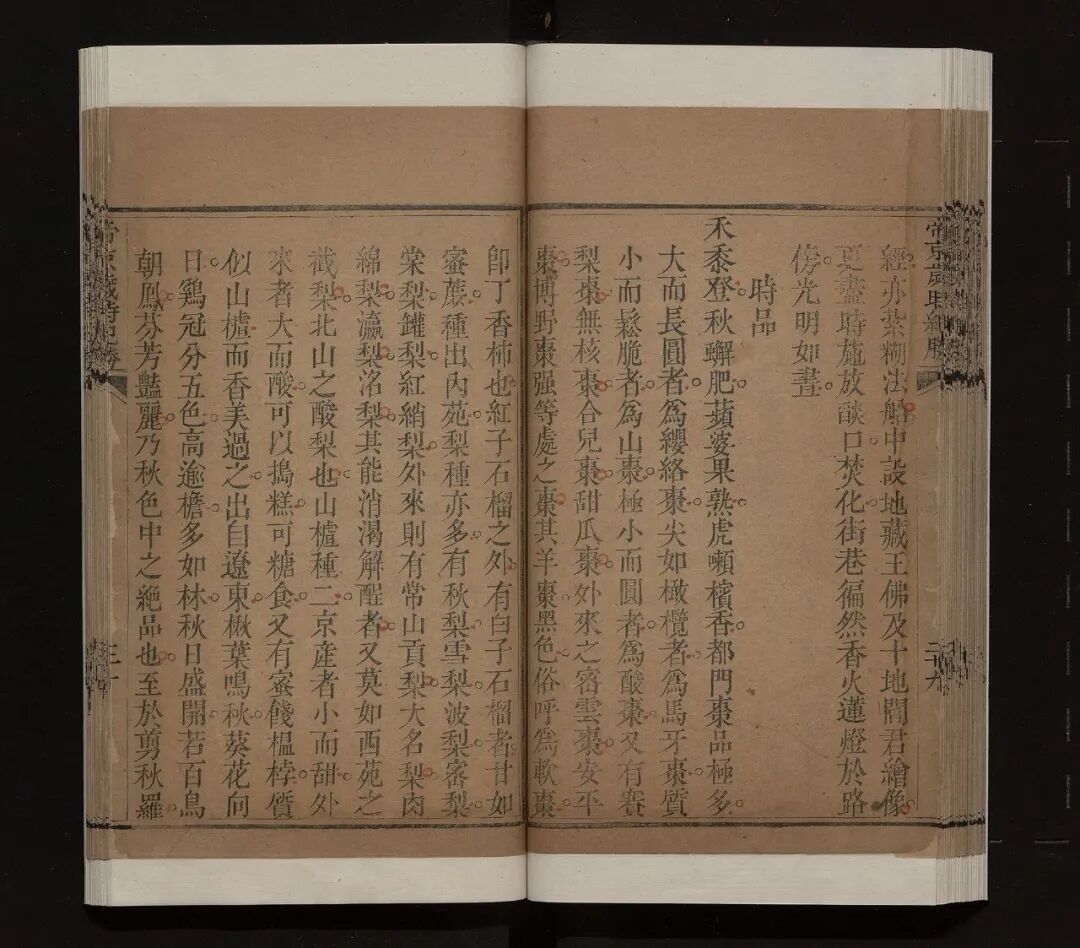 經亦紮糊法船中設地藏王佛及十地閻君繪像
更盡時施放燄口焚化街巷徧然香火蓮燈於路
傍光明如晝
時品
禾黍登秋蠏肥蘋婆果熟虎嚬檳香都門棗品極多
大而長圓者為纓絡棗尖如橄欖者為馬牙棗質
小而鬆脆者為山棗極小而圓者為酸棗又有賽
梨棗無核棗合兒棗甜瓜棗外來之密雲棗安平
棗博野棗强等處之棗其羊棗黑色俗呼為軟棗
卽丁香柿也紅子石榴之外有白子石榴者甘如
蜜蔗種出內苑梨種亦多有秋梨雪梨波梨密梨
棠梨罐梨紅綃梨外來則有常山貢梨大名梨肉
綿梨瀛梨洺梨其能消渴解酲者又莫如西苑之
截梨北山之酸梨也山樝種二京産者小而甜外
來者大而酸可以搗糕可糖食又有蜜餞榲桲質
似山樝而香美過之出自遼東楸葉鳴秋葵花向
日鷄冠分五色高逾檐多如林秋日盛開若百鳥
朝鳳芬芳豔麗乃秋色中之絶品也至於剪秋羅